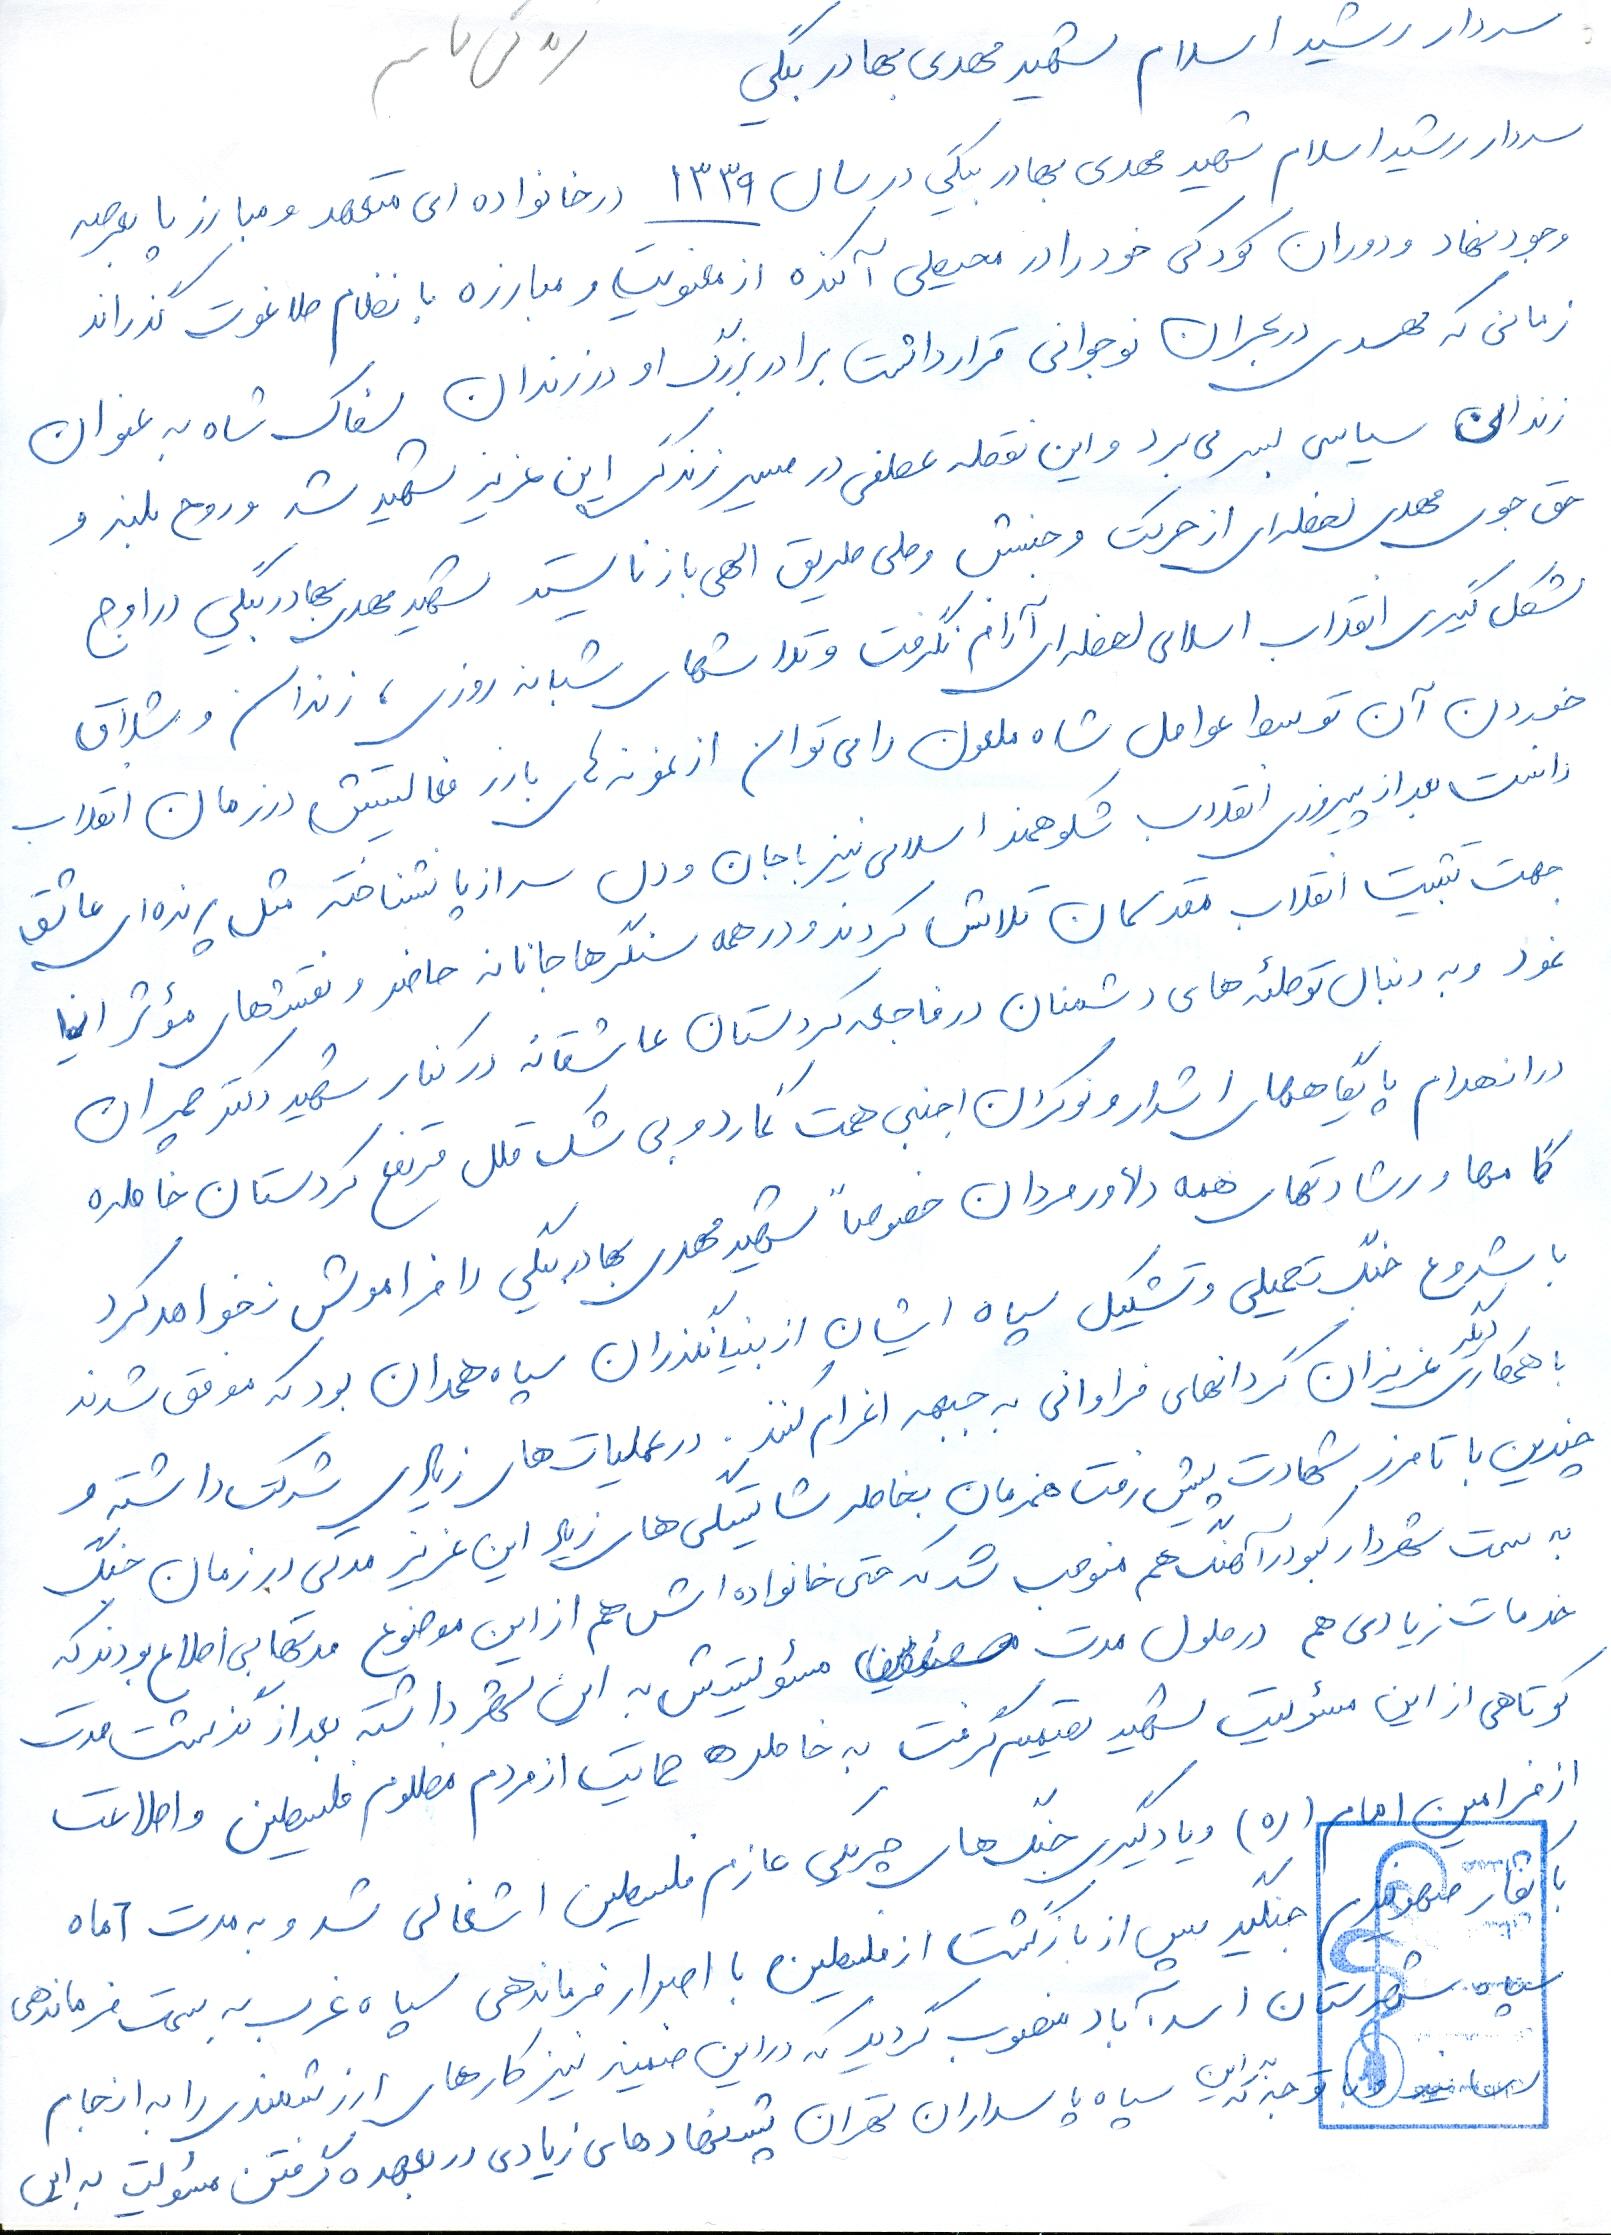 زندگی نامه
سردار رشید اسلام شهید مهدی بهادر بیگی
سردار رشید اسلام شهید مهدی بهادر بیگی در سال ۱۳۳۹ در خانواده ای متعهد و مبارز پا بعرصه
وجود نهاد و دوران کودکی خود را در محیطی آکنده از معنویت و مبارزه با نظام طاغوت گذراند
زمانی که مهدی در بحران نوجوانی قرار داشت برادر بزرگ او در زندان سفاک شاه به عنوان
زندانی سیاسی بسر می برد و این نقطه عطفی در مسیر زندگی این عزیز شهید شد و روح بلند و
حق جوی مهدی لحظه ای از حرکت و جنبش و طی طریق الهی باز نایستد شهید مهدی بهادر بیگی در اوج
شکل گیری انقلاب اسلامی لحظه ای آرام نگرفت و تلاشهای شبانه روزی ، زندان و شلاق
خوردن آن توسط عوامل شاه ملعون را می توان از نمونه های بارز فعالیتش در زمان انقلاب
دانست بعد از پیروزی انقلاب شکوهمند اسلامی نیز با جان و دل سر از پا نشناخته مثل پرنده ای عاشق
جهت تثبیت انقلاب مقدسمان تلاش کردند و در همه سنگرها جانانه حاضر و نقشهای مؤثر ایفا
نمود و به دنبال توطئه های دشمنان در فاجعه کردستان عاشقانه در کنار شهید دکتر چمران
در انهدام پایگاههای اشرار و نوکران اجنبی همت گمارد و بی شک قلل مرتفع کردستان خاطره
گامها و رشادتهای همه دلاور مردان خصوصاً شهید مهدی بهادر بیگی را فراموش نخواهد کرد
با شروع جنگ تحمیلی و تشکیل سپاه ایشان از بنیانگذران سپاه همدان بود که موفق شدند
با همکاری دیگر عزیزان گردانهای فراوانی به جبهه اعزام کنند . در عملیات های زیادی شرکت داشته و
چندین با تا مرز شهادت پیش رفت همزمان بخاطر شایستگی های زیاد این عزیز مدتی در زمان جنگ
به سمت شهردار کبودرآهنگ هم منصوب شد که حتی خانواده اش هم از این موضوع مدتها بی اطلاع بودند که
خدمات زیادی هم در طول مدت مسئولیتش به این شهر داشته بعد از گذشت مدت
کوتاهی از این مسؤلیت شهید تصمیم گرفت به خاطره حمایت از مردم مظلوم فلسطین و اطاعت
از فرامین امام (ره) و یادگیری جنگ های چریکی عازم فلسطین اشغالی شد و به مدت ۶ ماه
با کفار صهونیزم جنگید پس از بازگشت از فلسطین با اصرار فرماندهی سپاه غرب به سمت فرماندهی
سپاه شهرستان اسد آباد منصوب گردید که در این ضمینه نیز کارهای ارزشمندی را به انجام
رسانید و با توجه به این که سپاه پاسداران تهران پیشنهادهای زیادی در بعهده گرفتن مسؤلیت به این